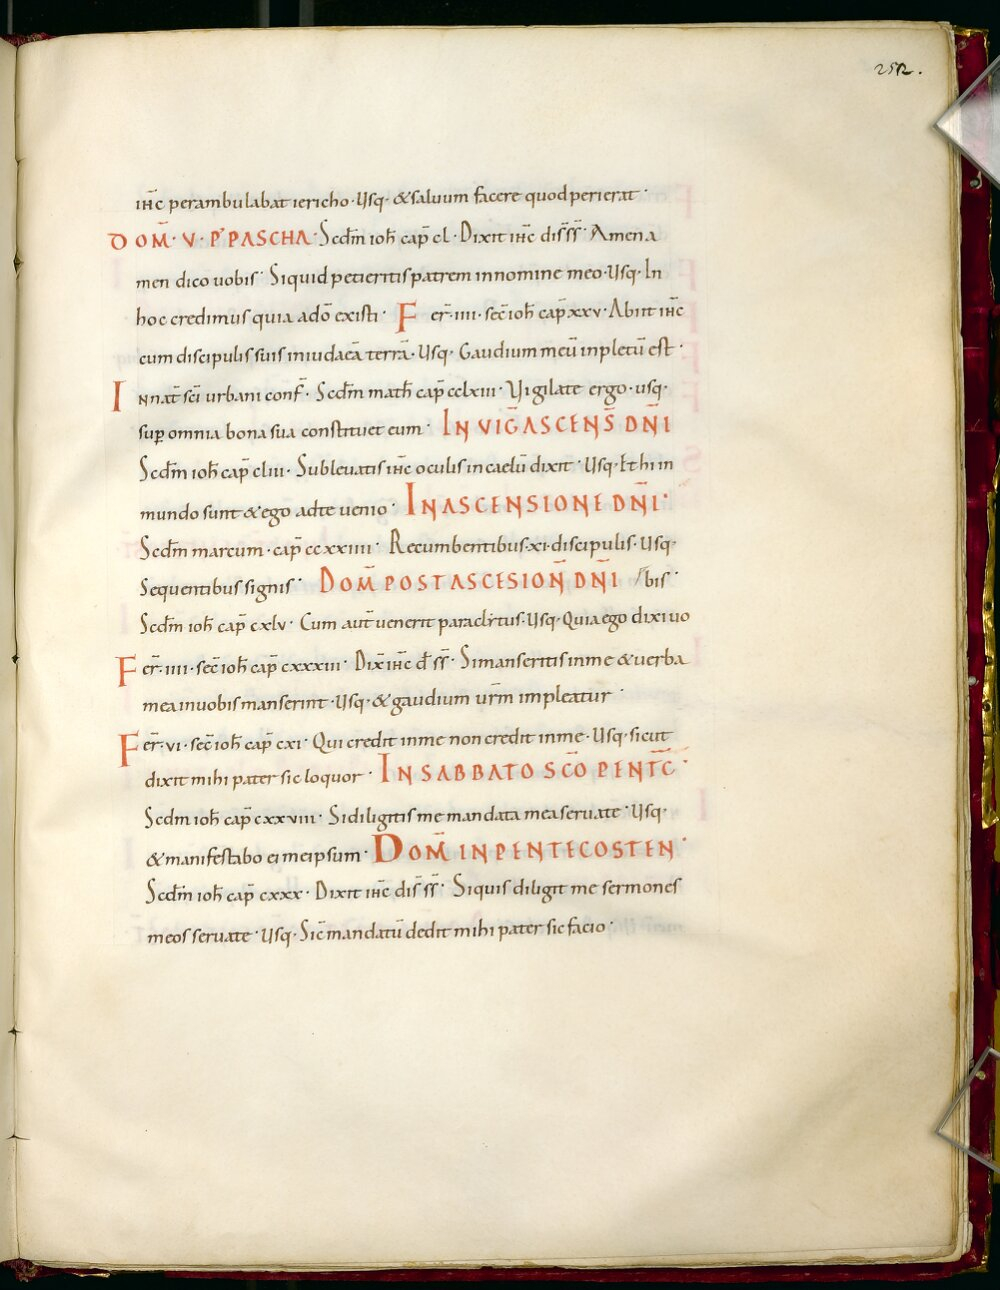 252.
ihc perambulabat iericho· Usq· & saluum facere quod perierat·
DOM̄· V· P' PASCHA· Scdm̄ ioh̄ cap̄ cl· Dixit ihc dis̄ s̄s̄· Amen a
men dico uobis· Siquid petieritis patrem in nomine meo· Usq· In
hoc credimus quia adō existi· Fer̄· IIII· sec̄ ioh̄ cap̄ xxv· Abiit ihc
cum discipulis suis in iudaeā terrā· Usq· Gaudium meū inpletū est·
In nat̄ sc̄i urbani conf̄· Scdm̄ math̄ cap̄ cclxiii· Vigilate ergo· usq·
sup̄ omnia bona sua constituet eum· IN VIḠ ASCENS̄ DN̄I
Scdm̄ ioh̄ cap̄ cliii· Subleuatis ihc oculis in caelū dixit· Usq· Et hi in
mundo sunt & ego ad te uenio· IN ASCENSIONE DN̄I·
Scdm̄ marcum· cap̄ ccxxiiii· Recumbentibus· xi· discipulis· Usq·
Sequentibus signis· DOM̄ POST ASCESION̄ DN̄I bis·
Scdm̄ ioh̄ cap̄ cxlv· Cum aut̄ uenerit paraclitus· Usq· Quia ego dixi uo
Fer̄· IIII· sec̄ ioh̄ cap̄ cxxxiii· Dix̄ ihc d̄ s̄s̄· Si manseritis in me & uerba
mea in uobis manserint· Usq· & gaudium ur̄m impleatur·
Fer̄· VI· sec̄ ioh̄ cap̄ cxi· Qui credit in me non credit in me· Usq· sicut
dixit mihi pater sic loquor· IN SABBATO SC̄O PENTC̄·
Scdm ioh̄ cap̄ cxxviii· Si diligitis me mandata mea seruate· Usq·
& manifestabo ei meipsum· DOM̄ IN PENTECOSTEN·
Scdm̄ ioh̄ cap̄ cxxx· Dixit ihc dis̄ s̄s̄· Siquis diligit me sermones
meos seruate· Usq· Sic̄ mandatū dedit mihi pater sic facio·